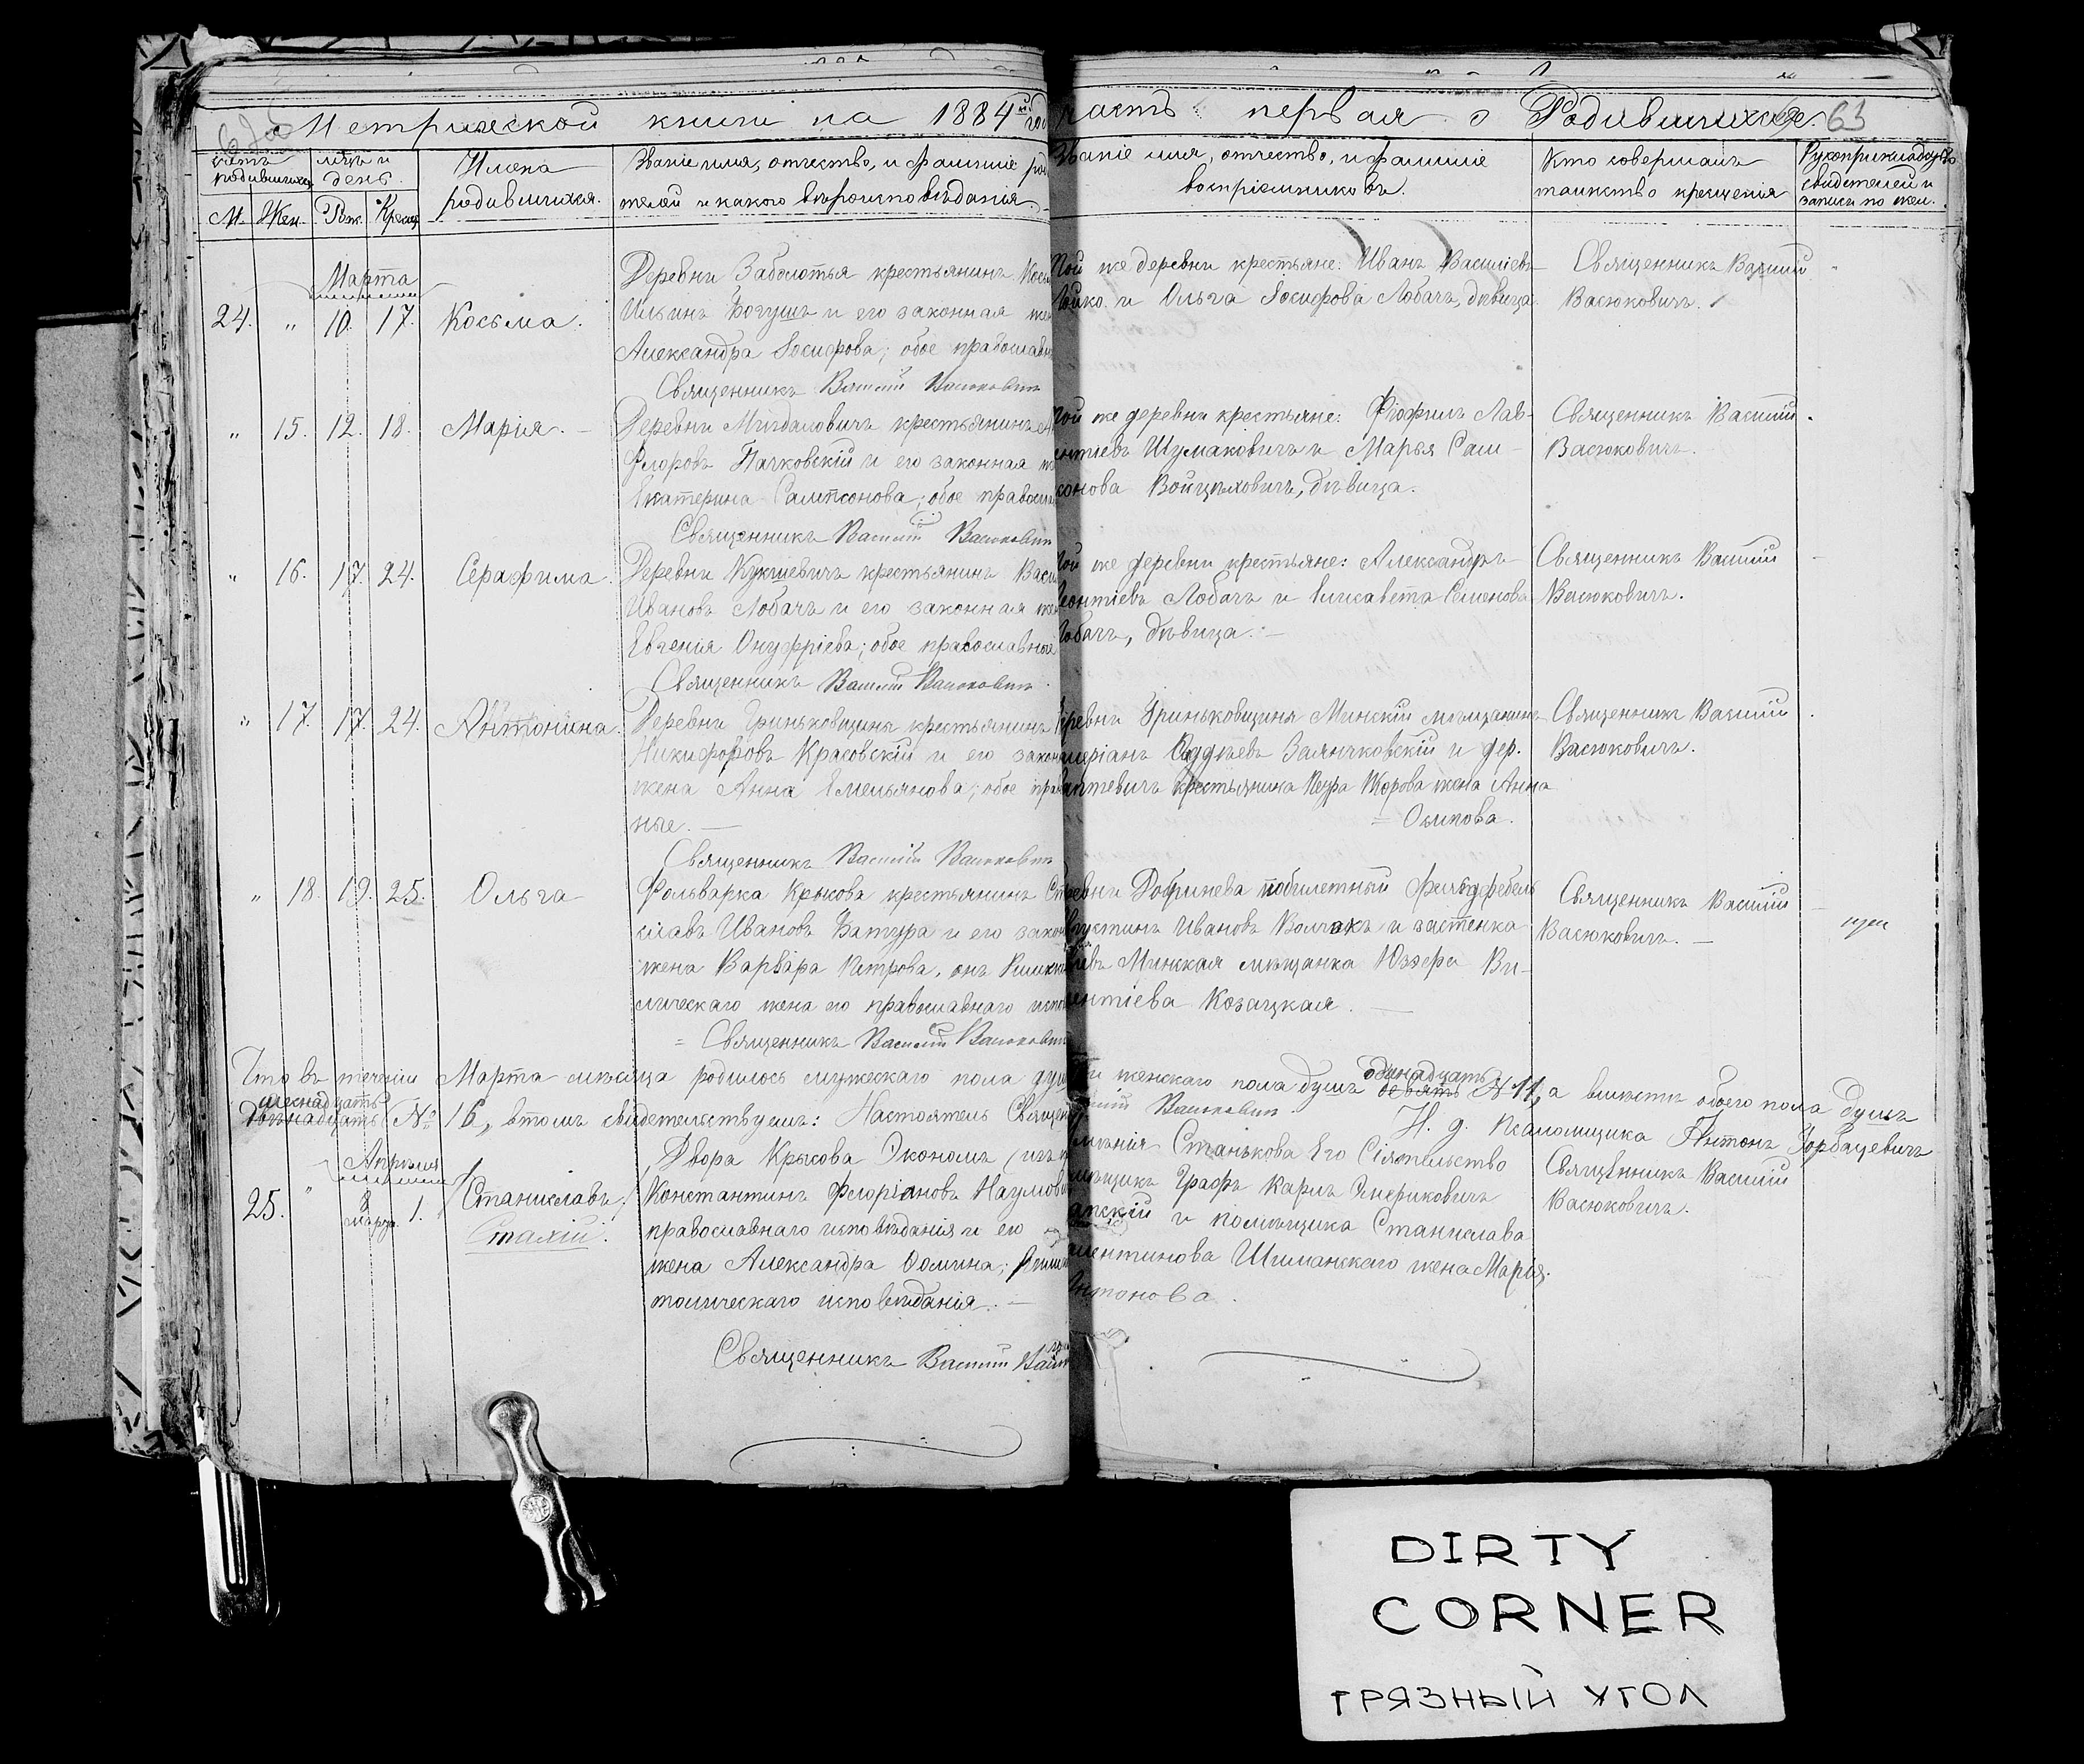 Метрической книги на 1884й год
часть первая о Родившихся. 63
Счетъ родившихся
мѣцъ и день.
М. Жен. Рож. Крещ.
Имена родившихся.
Званіе имя, отчество, и фамиліе ро
телей и какого вѣроисповѣданія.
Званіе имя, отчество, и фамиліе
воспріемниковъ.
Кто совершалъ
таинство крещенія
Рукоприкладство
свидетелей и
запись по жел.
Марта
24. " 10. 17. Косьма.
Деревни Заболотья крестьянинъ
Ильинъ Богушъ и его законная
Александра Іосифова; обое православн
Священникъ Василій Васюковичъ
Той же деревни крестьяне: Иванъ Василіевъ
и Ольга Іосифова Лобачъ, дѣвица.
Священникъ Василій
Васюковичъ.
" 15. 12. 18. Марія.
Деревни Мигдаловичъ крестьянинъ
Флоровъ Пачковскій и его законная
Екатерина Сампсонова; обое православ
Священникъ Василій Васюкович
Той же деревни крестьяне: Фіофилъ Лав-
рентіевъ Шумаковичъ и Марья Сам-
сонова Войцѣховичъ, дѣвица.
Священникъ Василій
Васюковичъ.
" 16. 17. 24. Серафима.
Деревни Кукшевичъ крестьянинъ Васи
Ивановъ Лобачъ и его законная же
Евгенія Онуфріева; обое православныи
Священникъ Василій Васюковичъ
Той же деревни крестьяне: Александръ
Леонтіевъ Лобачъ и Елисавета Семенова
Лобачъ, дѣвица.
Священникъ Василій
Васюковичъ.
" 17. 17. 24. Антонина.
Деревни Гриньковщины крестьянинъ
Никифоровъ Красовскій и его закон
жена Анна Емельянова; обое прав
ные.
Священникъ Василій Васюкович
Деревни Гриньковщины Минскій мѣщанинъ
Заянчковскій и дер.
крестьянина Петра жена Анна
Осипова.
Священникъ Василій
Васюковичъ.
" 18. 19. 25. Ольга
Фольварка Крысова крестьянинъ Ст
славъ Ивановъ Батура и его закон
жена Варвара Петрова, онъ Римско
лическаго жена по православнаго испо
Священникъ Василій Васюкович
Деревни Добринева фельдфебель
Августинъ Ивановъ Волчекъ и застенка
Минская мѣщанка Юзефа Ви-
кентіева Козацкая.
Священникъ Василій
Васюковичъ.
Что въ теченіи Марта мѣсяца родилось мужескаго пола душъ
и женскаго пола душъ одинадцать девять №11, а вмѣстѣ обоего пола душъ
шеснадцать
№ 16, втомъ свидетельствуемъ: Настоятель Священ
Василій Васюкович
И. д. Псаломщика Антонъ Горбацевичъ
Апрѣля
25. " 8 марта 1. Станиславъ
Стахій.
Двора Крысова Экономъ
Константинъ Флоріановъ Наумов
православнаго исповѣданія и его
жена Александра Фомина; Римск
толическаго исповѣданія.
Священникъ Василій Васюк
имѣнія Станькова Его Сіятельство
Графъ Карлъ Эмериковичъ
Чапскій и помѣщика Станислава
Валентинова Шиманскаго жена Марія
Антонова.
Священникъ Василій
Васюковичъ.
DIRTY
CORNER
ГРЯЗНЫЙ УГОЛ